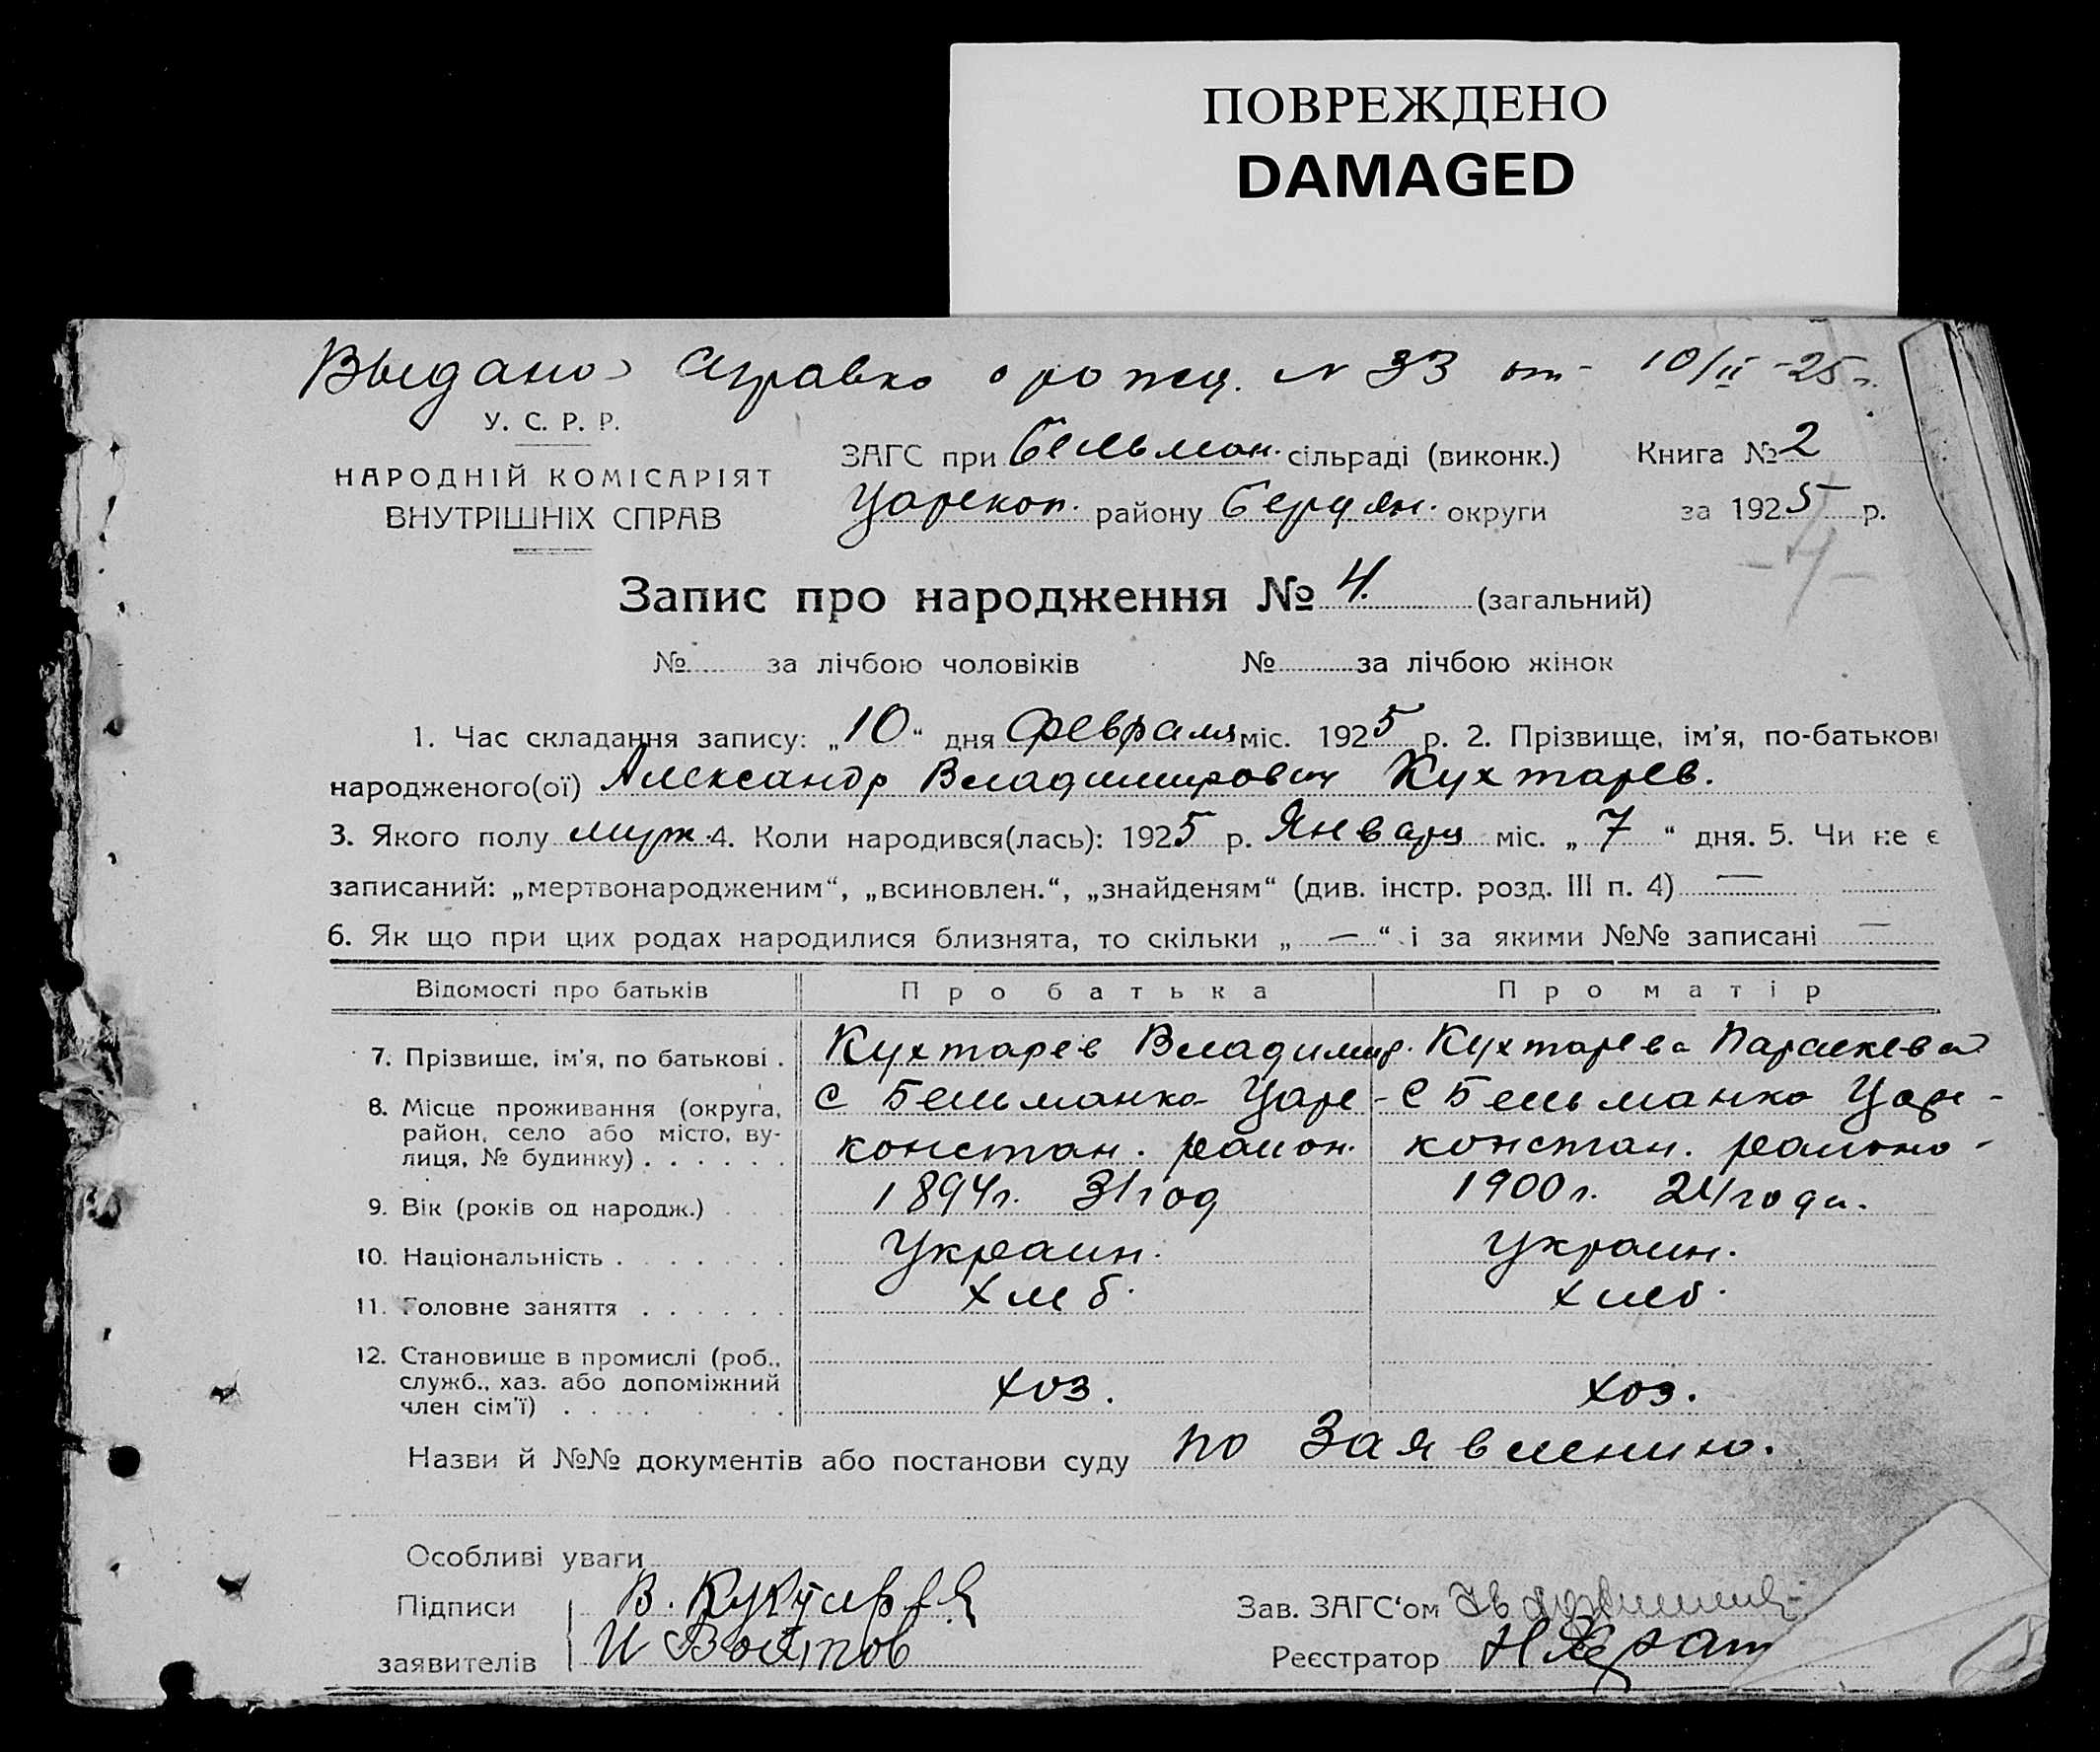 ПОВРЕЖДЕНО
DAMAGED
Выдано справка о рожд. N 33 от 10/II-25 г.
У. С. Р. Р.
НАРОДНІЙ КОМІСАРІЯТ
ВНУТРІШНІХ СПРАВ
ЗАГС при Бельман. сільраді (виконк.) Книга № 2
Царекон. району Бердян. округи за 1925 р.
-4-
Запис про народження № 4. (загальний)
№ за лічбою чоловіків № за лічбою жінок
1. Час складання запису: „10“ дня февраля міс. 1925 р. 2. Прізвище, ім’я, по-батькові
народженого(ої) Александр Владимирович Кухтарев.
3. Якого полу муж. 4. Коли народився(лась): 1925 р. Января міс. „7“ дня. 5. Чи не є
записаний: „мертвонародженим“, „всиновлен.“, „знайденям“ (див. інстр. розд. III п. 4) —
6. Як що при цих родах народилися близнята, то скільки „—“ і за якими №№ записані —
Відомості про батьків Про батька Про матір
7. Прізвище, ім’я, по батькові . Кухтарев Владимир. Кухтарева Параскева
8. Місце проживання (округа, район, село або місто, вулиця, № будинку) . . . . . . с Бельманка Царе-констан. район. с Бельманка Царе-констан. района
9. Вік (років од народж.) 1894г. 31 год 1900г. 24 года.
10. Національність . . . . . . . Украин. Украин.
11. Головне заняття . . . . . . хлеб. хлеб.
12. Становище в промислі (роб., служб., хаз. або допоміжний член сім’ї) хоз. хоз.
Назви й №№ документів або постанови суду по заявлению.
Особливі уваги
Підписи В. Кухтарев
заявителів И Воитов
Зав. ЗАГС‘ом
Реєстратор